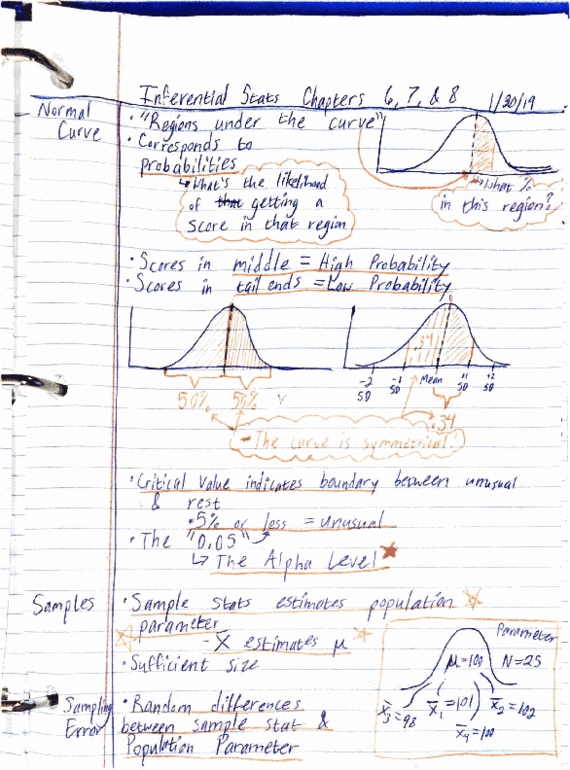 Inferential Stats Chapters 6, 7, & 8 1/30/19
Normal Curve
• "Regions under the curve"
• Corresponds to
probabilities
↳ What's the likelihood
of that getting a
score in that region
What %
in this region?
• Scores in middle = High Probability
• Scores in tail ends = Low Probability
50% 50%
.34
-2 SD -1 SD Mean +1 SD +2 SD
.34
- The curve is symmetrical!
• Critical Value indicates boundary between unusual
& rest
• 5% or less = unusual
• The "0.05"
↳ The Alpha Level
Samples
• Sample stats estimates population
parameter
- X̄ estimates μ
• Sufficient size
Parameter
μ=100 N=25
X̄3=98 X̄1=101 X̄2=102
X̄4=100
Sampling Error
• Random differences
between sample stat &
Population Parameter